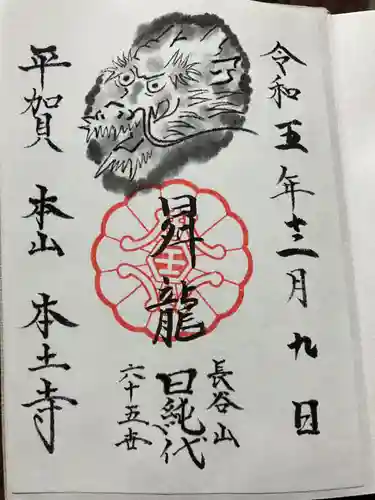 令和五年十二月九日
昇龍
長谷山
日純代
六十五世
平賀 本山 本土寺